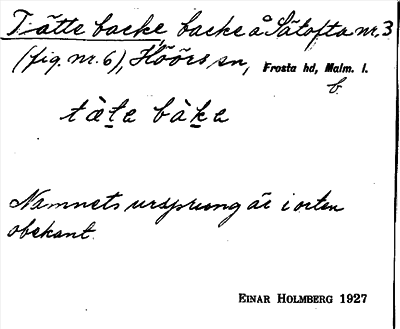 Tätte backe backe å Sätofta nr. 3
(fig. nr. 6), Höörs sn, Frosta hd, Malm. l.
b.
tàta bàka
Namnets ursprung är i orten
obekant.
EINAR HOLMBERG 1927